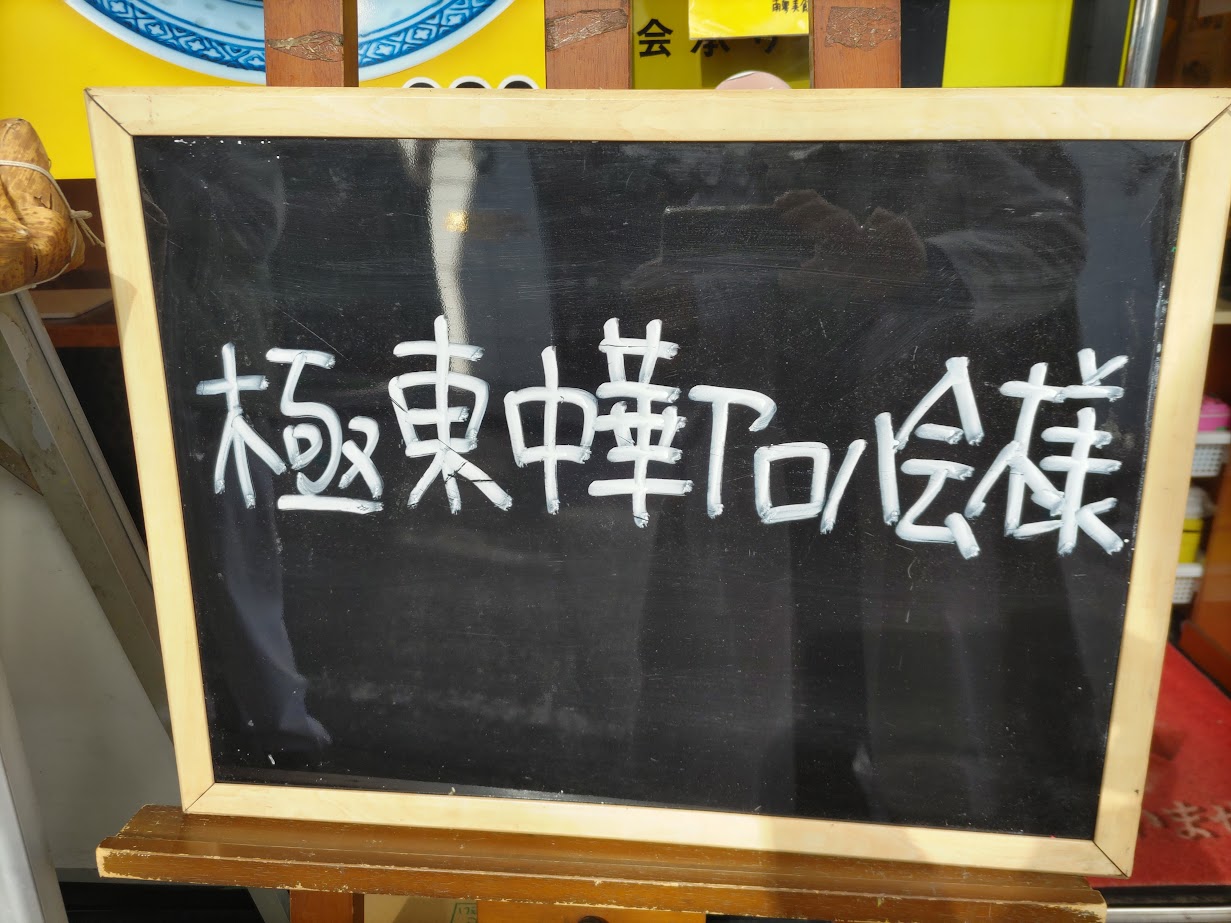 会
極東中華アロハ会様